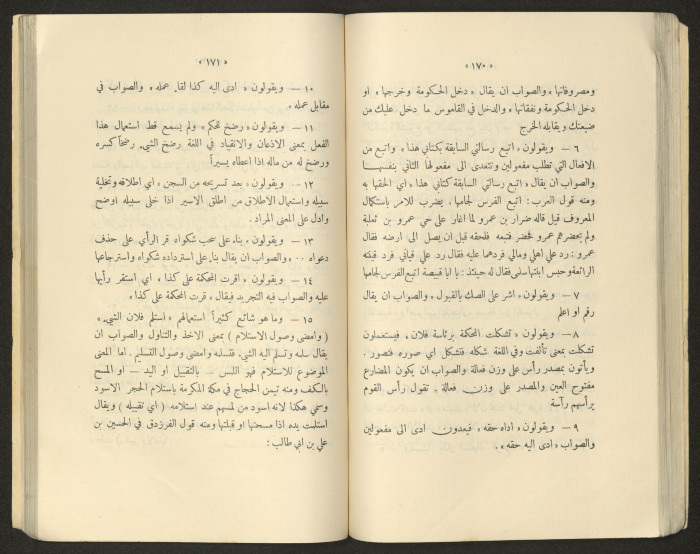 «١٧٠»
ومصروفاتها، والصواب ان يقال «دخل الحكومة وخرجها، او
دخل الحكومة ونفقاتها»، والدخل في القاموس ما دخل عليك من
ضيعتك ويقابله الخرج
٦ – ويقولون «اتبع رسالتي السابقة بكتابي هذا» واتبع من
الافعال التي تطلب مفعولين وتتعدى الى مفعولها الثاني بنفسها
والصواب ان يقال «اتبع رسالتي السابقة كتابي هذا» اي الحقها به
ومنه قول العرب: اتبع الفرس لجامها، يضرب للامر باستكمال
المعروف قيل قاله ضرار بن عمرو لما اغار على حي عمرو بن ثعلبة
ولم يحضرهم عمرو فحضر فتبعه فلحقه قبل ان يصل الى ارضه فقال
عمرو: رد علي أهلي ومالي فردهما عليه فقال رد علي قياني فرد قينته
الرائعة وحبس ابنتها سلمى فقال له حينئذ: يا ابا قبيصة اتبع الفرس لجامها
٧ – ويقولون «اشر على الصك بالقبول» والصواب ان يقال
رقم او اعلم
٨ – ويقولون «تشكلت المحكمة برئاسة فلان» فيستعملون
تشكلت بمعنى تألفت وفي اللغة شكله فتشكل اي صوره فتصور.
ويأتون بمصدر رأس على وزن فعالة والصواب ان يكون المضارع
مفتوح العين والمصدر على وزن فعالة. تقول رأس القوم
يرأسهم رآسة
٩ – ويقولون «اداه حقه» فيعدون ادى الى مفعولين
والصواب «ادى اليه حقه».
«١٧١»
١٠ – ويقولون «ادى اليه كذا لقاء عمله» والصواب في
مقابل عمله.
١١ – ويقولون «رضخ للحكم» ولم يسمع قط استعمال هذا
الفعل بمعنى الاذعان والانقياد في اللغة رضخ الشيء رضخاً كسره
ورضخ له من ماله اذا اعطاه يسيراً
١٢ – ويقولون «بعد تسريحه من السجن» اي اطلاقه وتخلية
سبيله واستعمال الاطلاق من اطلق الاسير اذا خلى سبيله اوضح
وادل على المعنى المراد.
١٣ – ويقولون «بناء على سحب شكواه قر الرأي على حذف
دعواه ٠٠» والصواب ان يقال بناء على استرداده شكواه واسترجاعها
١٤ – ويقولون «اقرت المحكمة على كذا» اي استقر رأيها
عليه والصواب فيه التجريد فيقال «قرت المحكمة على كذا»
١٥ – وما هو شائع كثيراً استعمالهم «استلم فلان الشيء»
(وامضى وصول الاستلام) بمعنى الاخذ والتناول والصواب ان
يقال سلمه وتسلم اليه الشيء فتسلمه وامضى وصول التسليم. اما المعنى
الموضوع للاستلام فهو اللمس – بالتقبيل او اليد – او المسح
بالكف ومنه تيمن الحجاج في مكة المكرمة باستلام الحجر الاسود
وسمي هكذا لانه اسود من لمسهم عند استلامه (اي تقبيله) ويقال
استلمت يده اذا مسحتها او قبلتها ومنه قول الفرزدق في الحسين بن
علي بن ابي طالب: